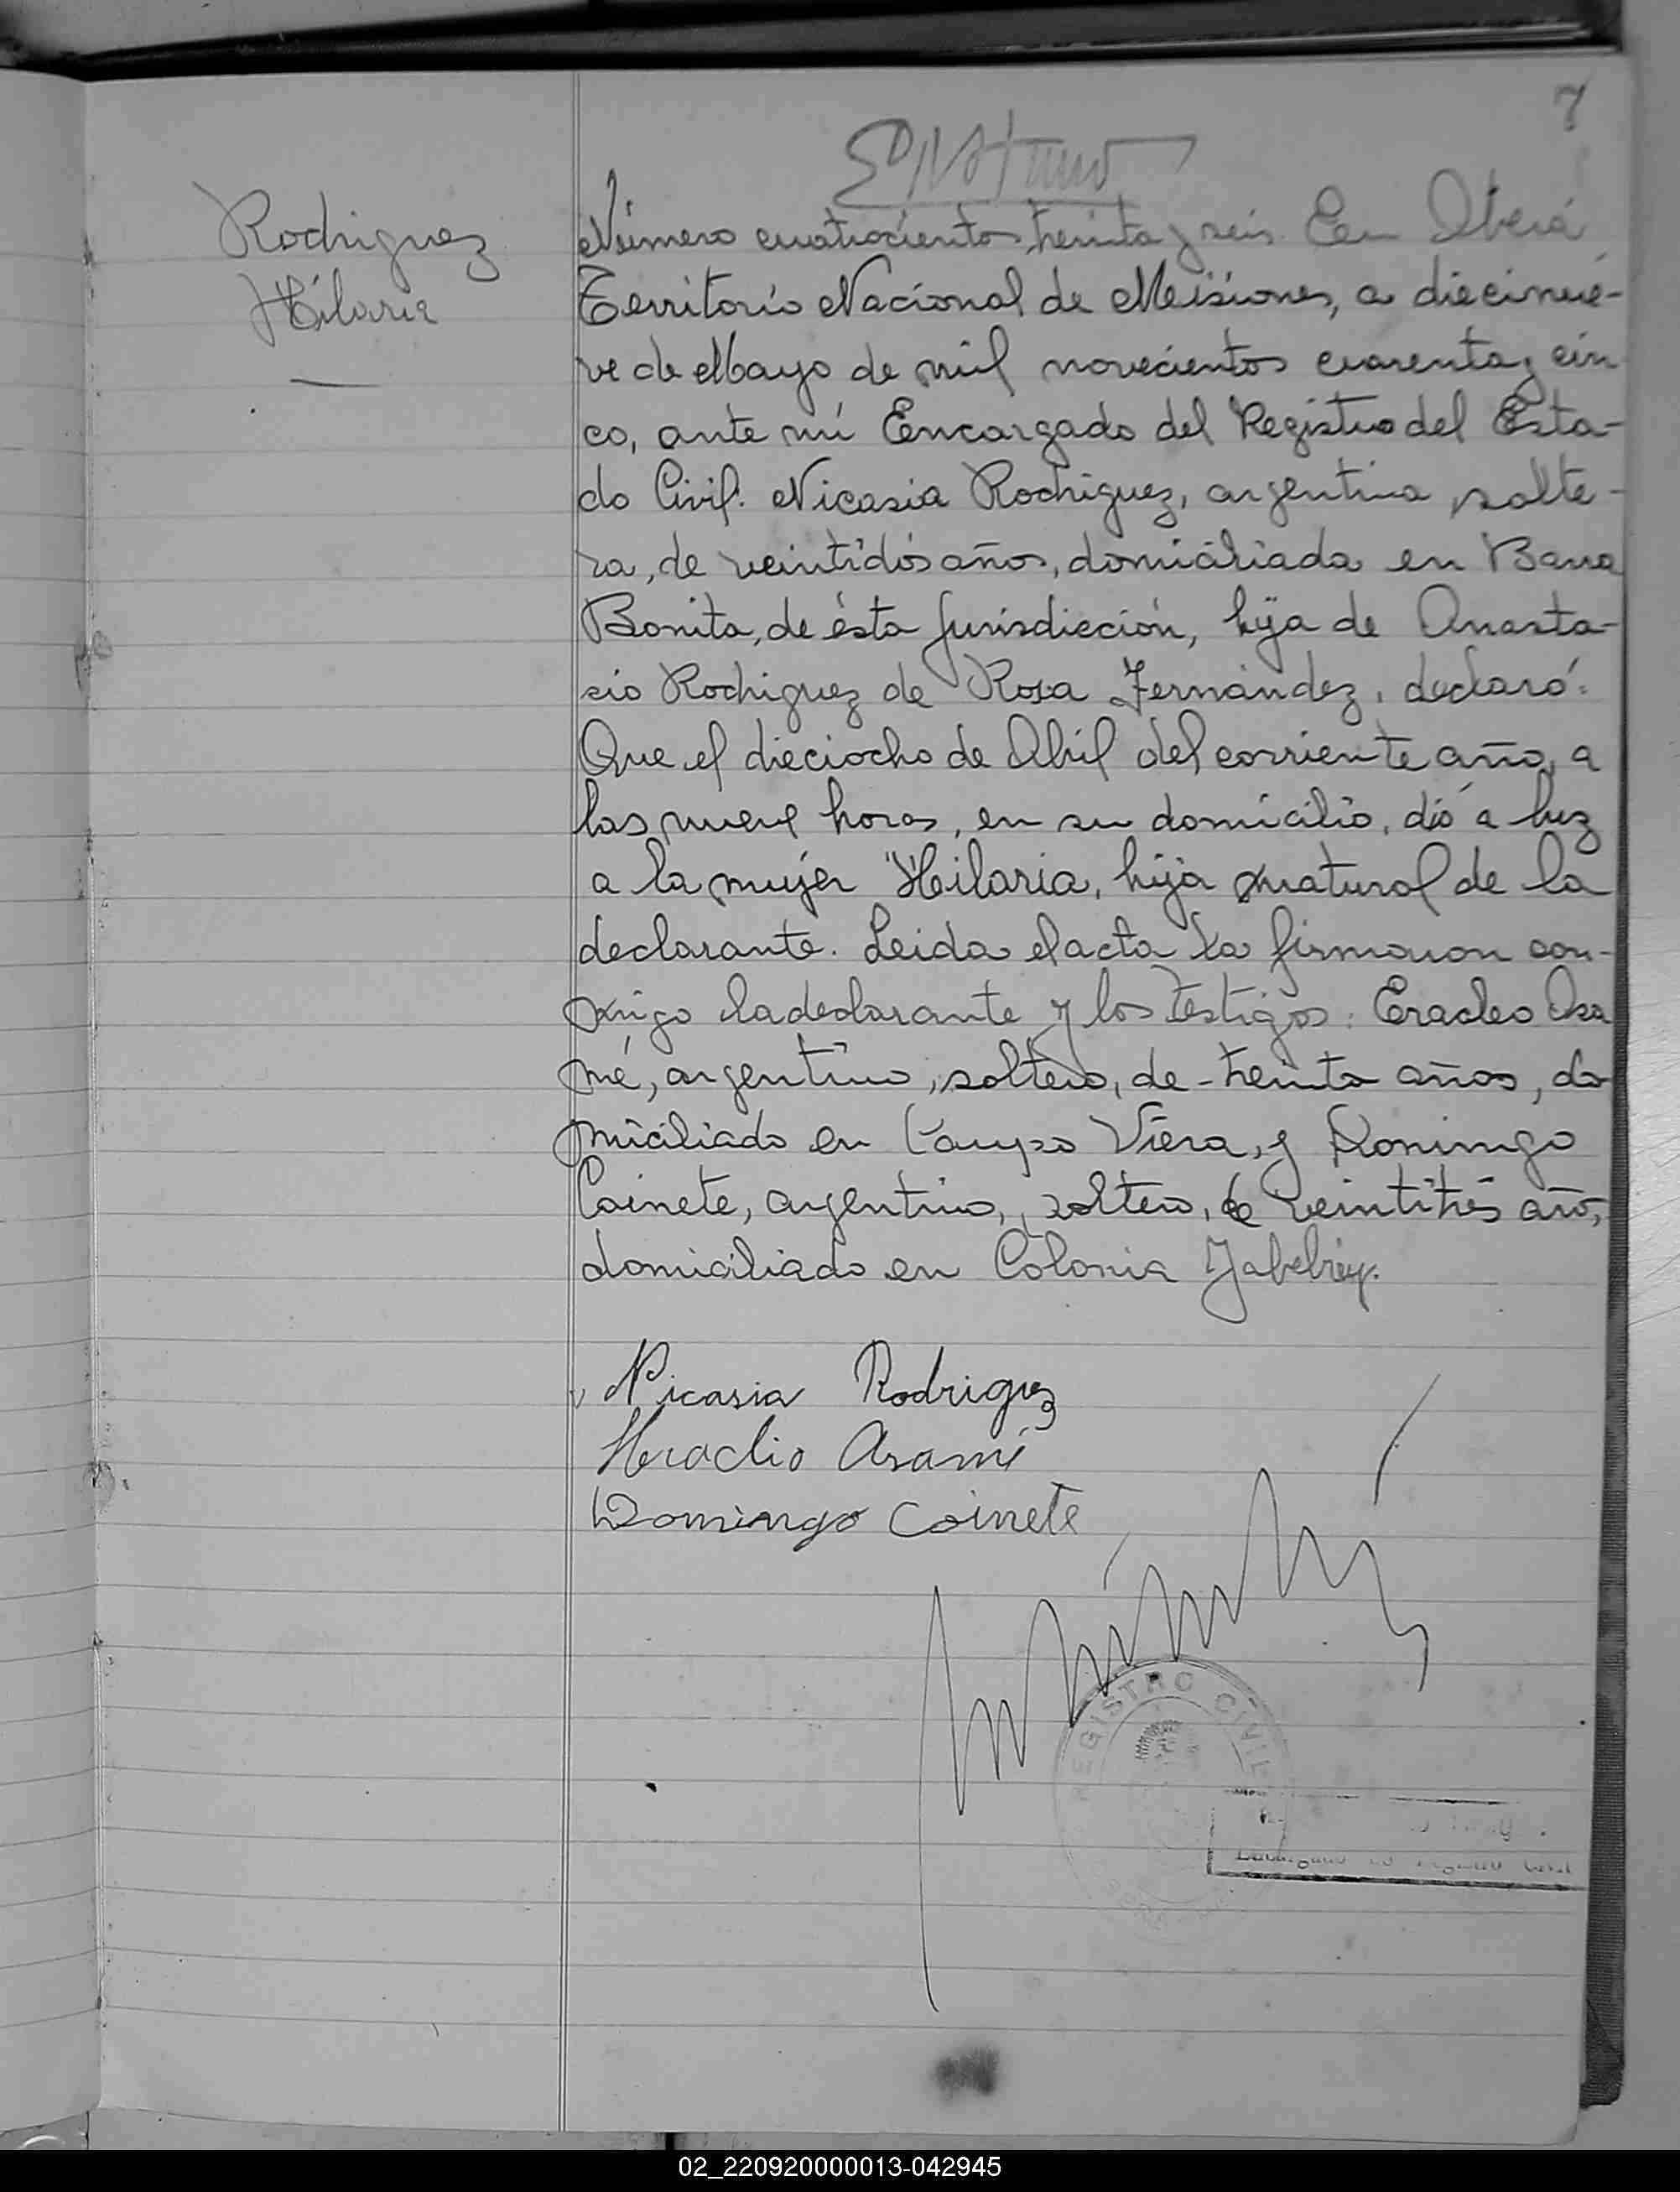 7
Rodriguez
Hilaria
Número cuatrocientos treinta y seis. En Oberá
Territorio Nacional de Misiones, a diecinue-
ve de Mayo de mil novecientos cuarenta y cin
co, ante mí Encargado del Registro del Esta-
do Civil. Nicasia Rodriguez, argentina, solte-
ra, de veintidós años, domiciliada en Barra
Bonita, de ésta Jurisdicción, hija de Anasta-
sio Rodriguez de Rosa Fernández, declaró:
Que el dieciocho de Abril del corriente año, a
las nueve horas, en su domicilio, dió a luz
a la mujer "Hilaria, hija natural de la
declarante. Leida el acta la firmaron con-
migo la declarante y los testigos: Eracleo Asa
mé, argentino, soltero, de treinta años, do
miciliado en Campo Viera, y Domingo
Coinete, argentino, soltero, de veintitrés años,
domiciliado en Colonia Yabebiry.
Nicasia Rodriguez
Heraclio Asamé
Domingo Coinete
REGISTRO CIVIL
Encargado del Registro Civil
02_220920000013-042945